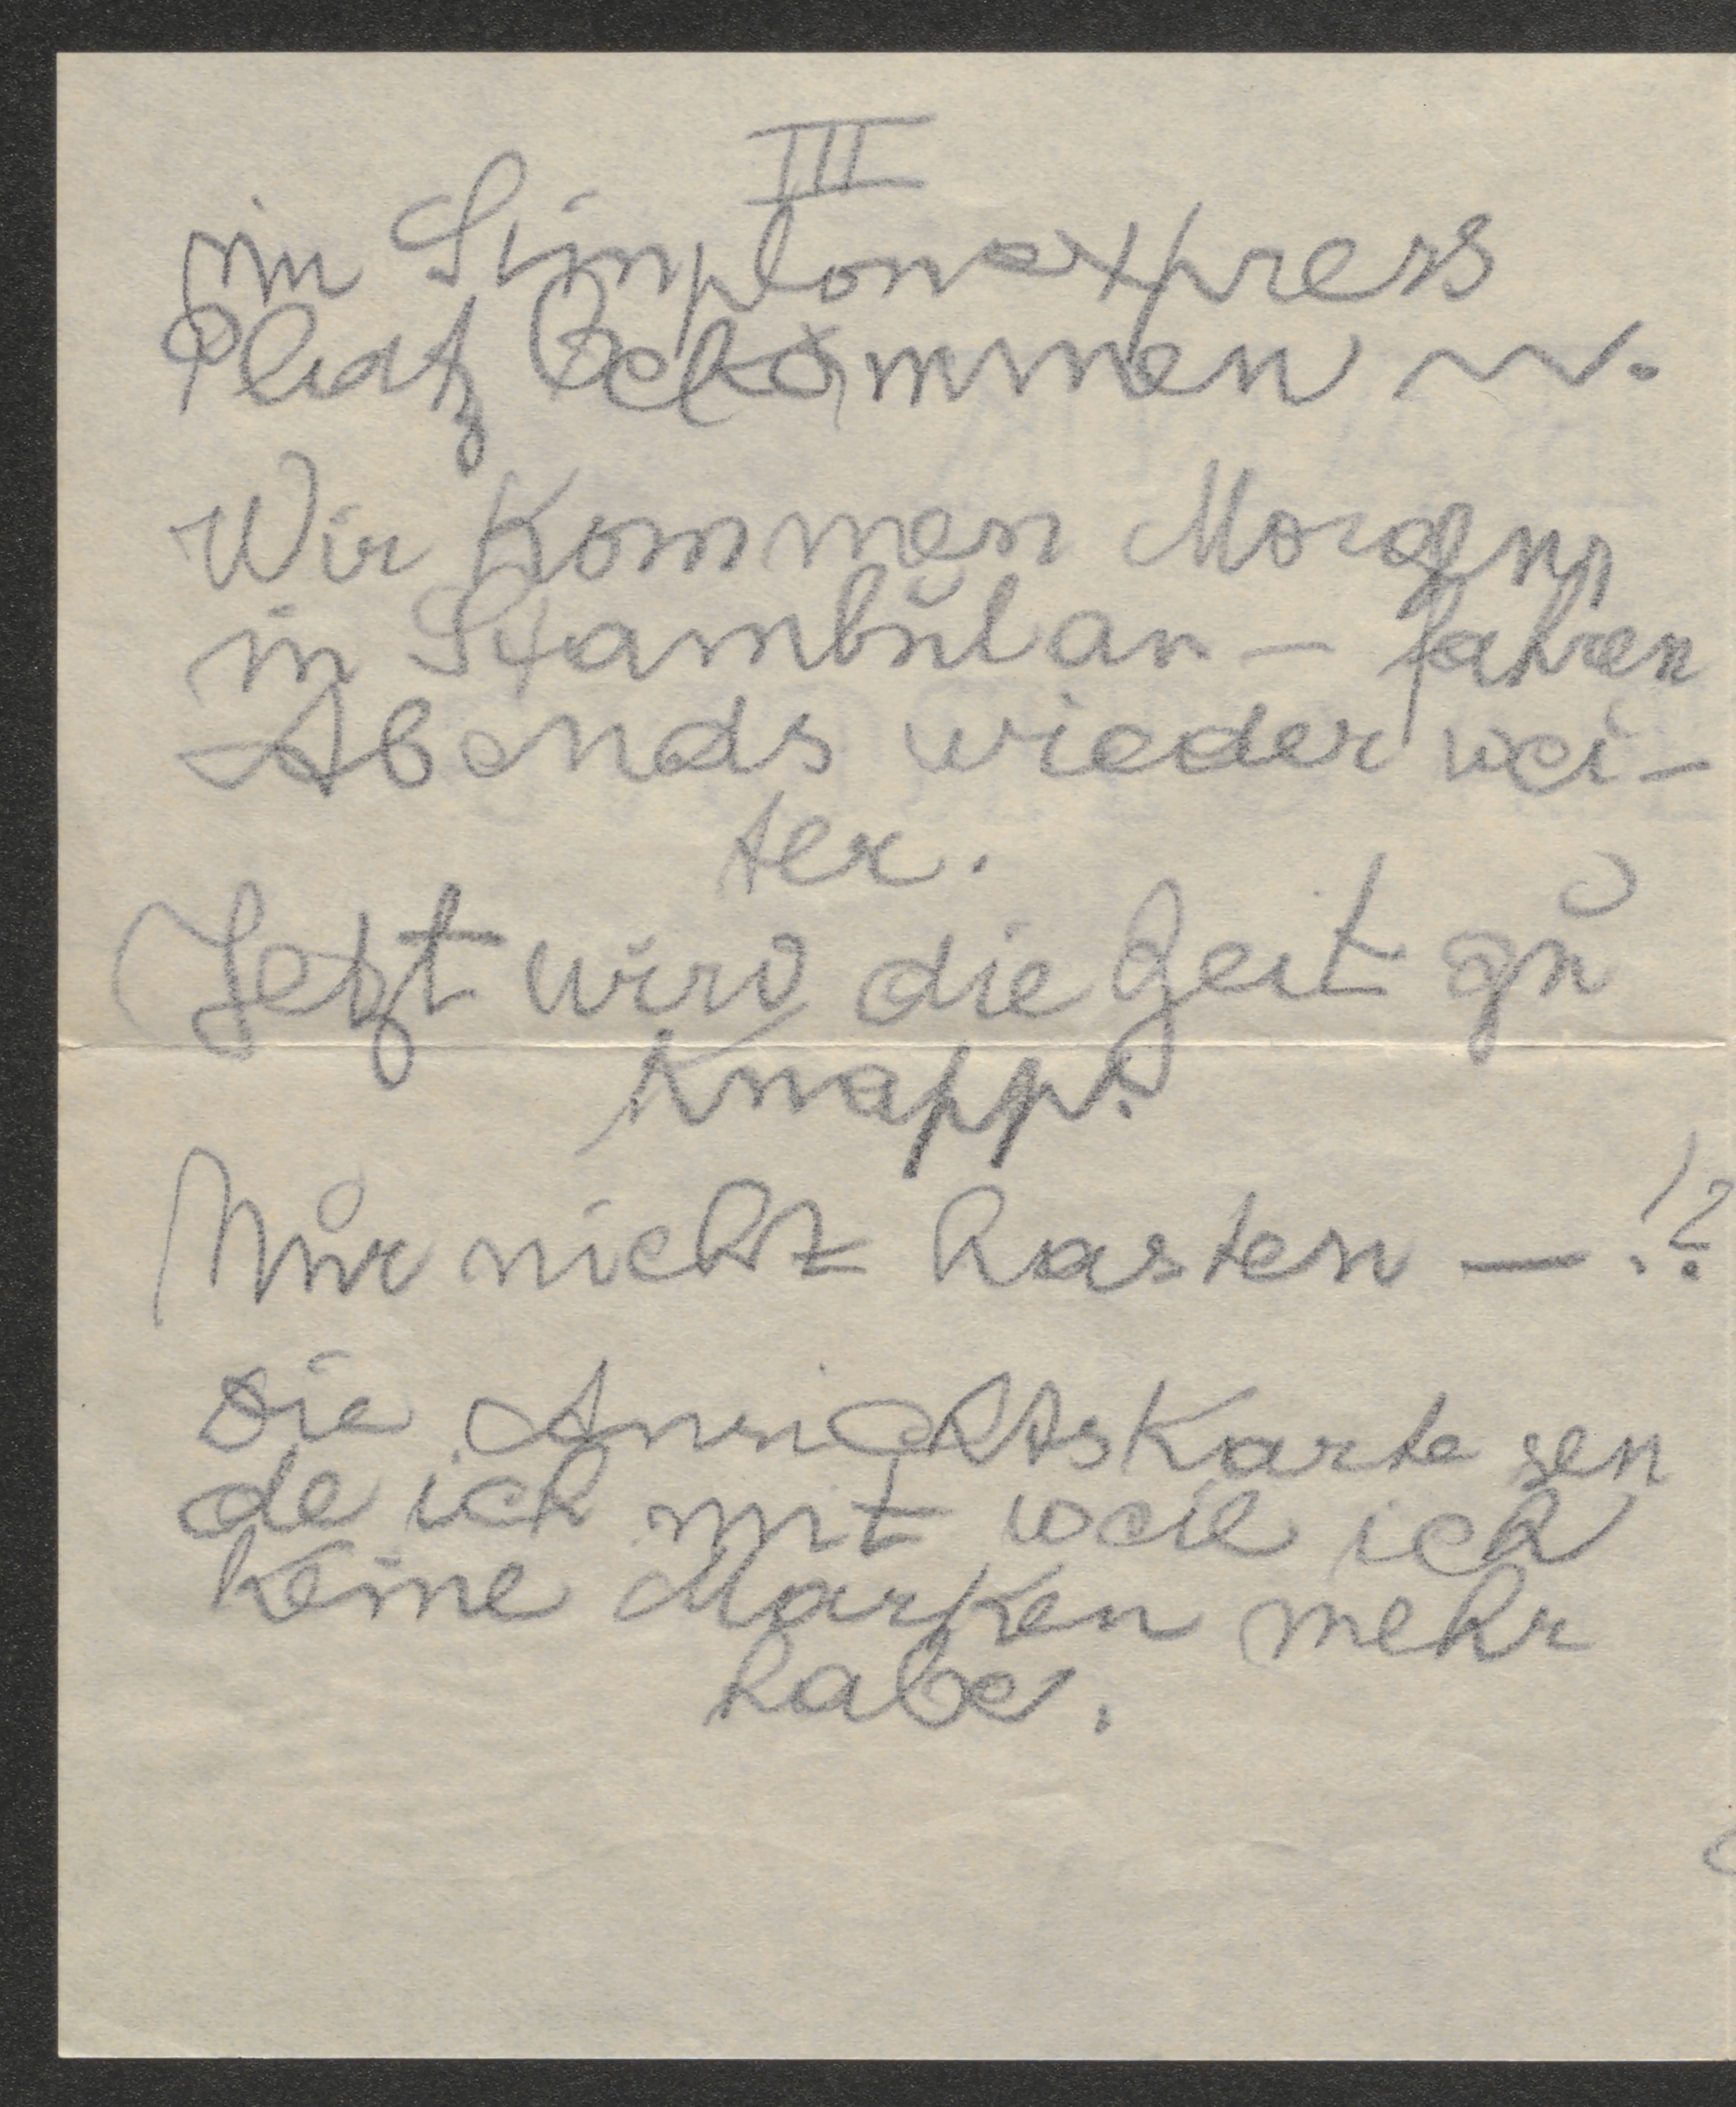 III
im Simplonexpress
Platz bekommen ~.
Wir kommen Morgens
in Stambul an — fahren
Abends wieder wei-
ter.
Jetzt wird die Zeit zu
knapp.
Nur nicht hasten — !?
Die Ansichtskarte sen
de ich mit weil ich
keine Marken mehr
habe.